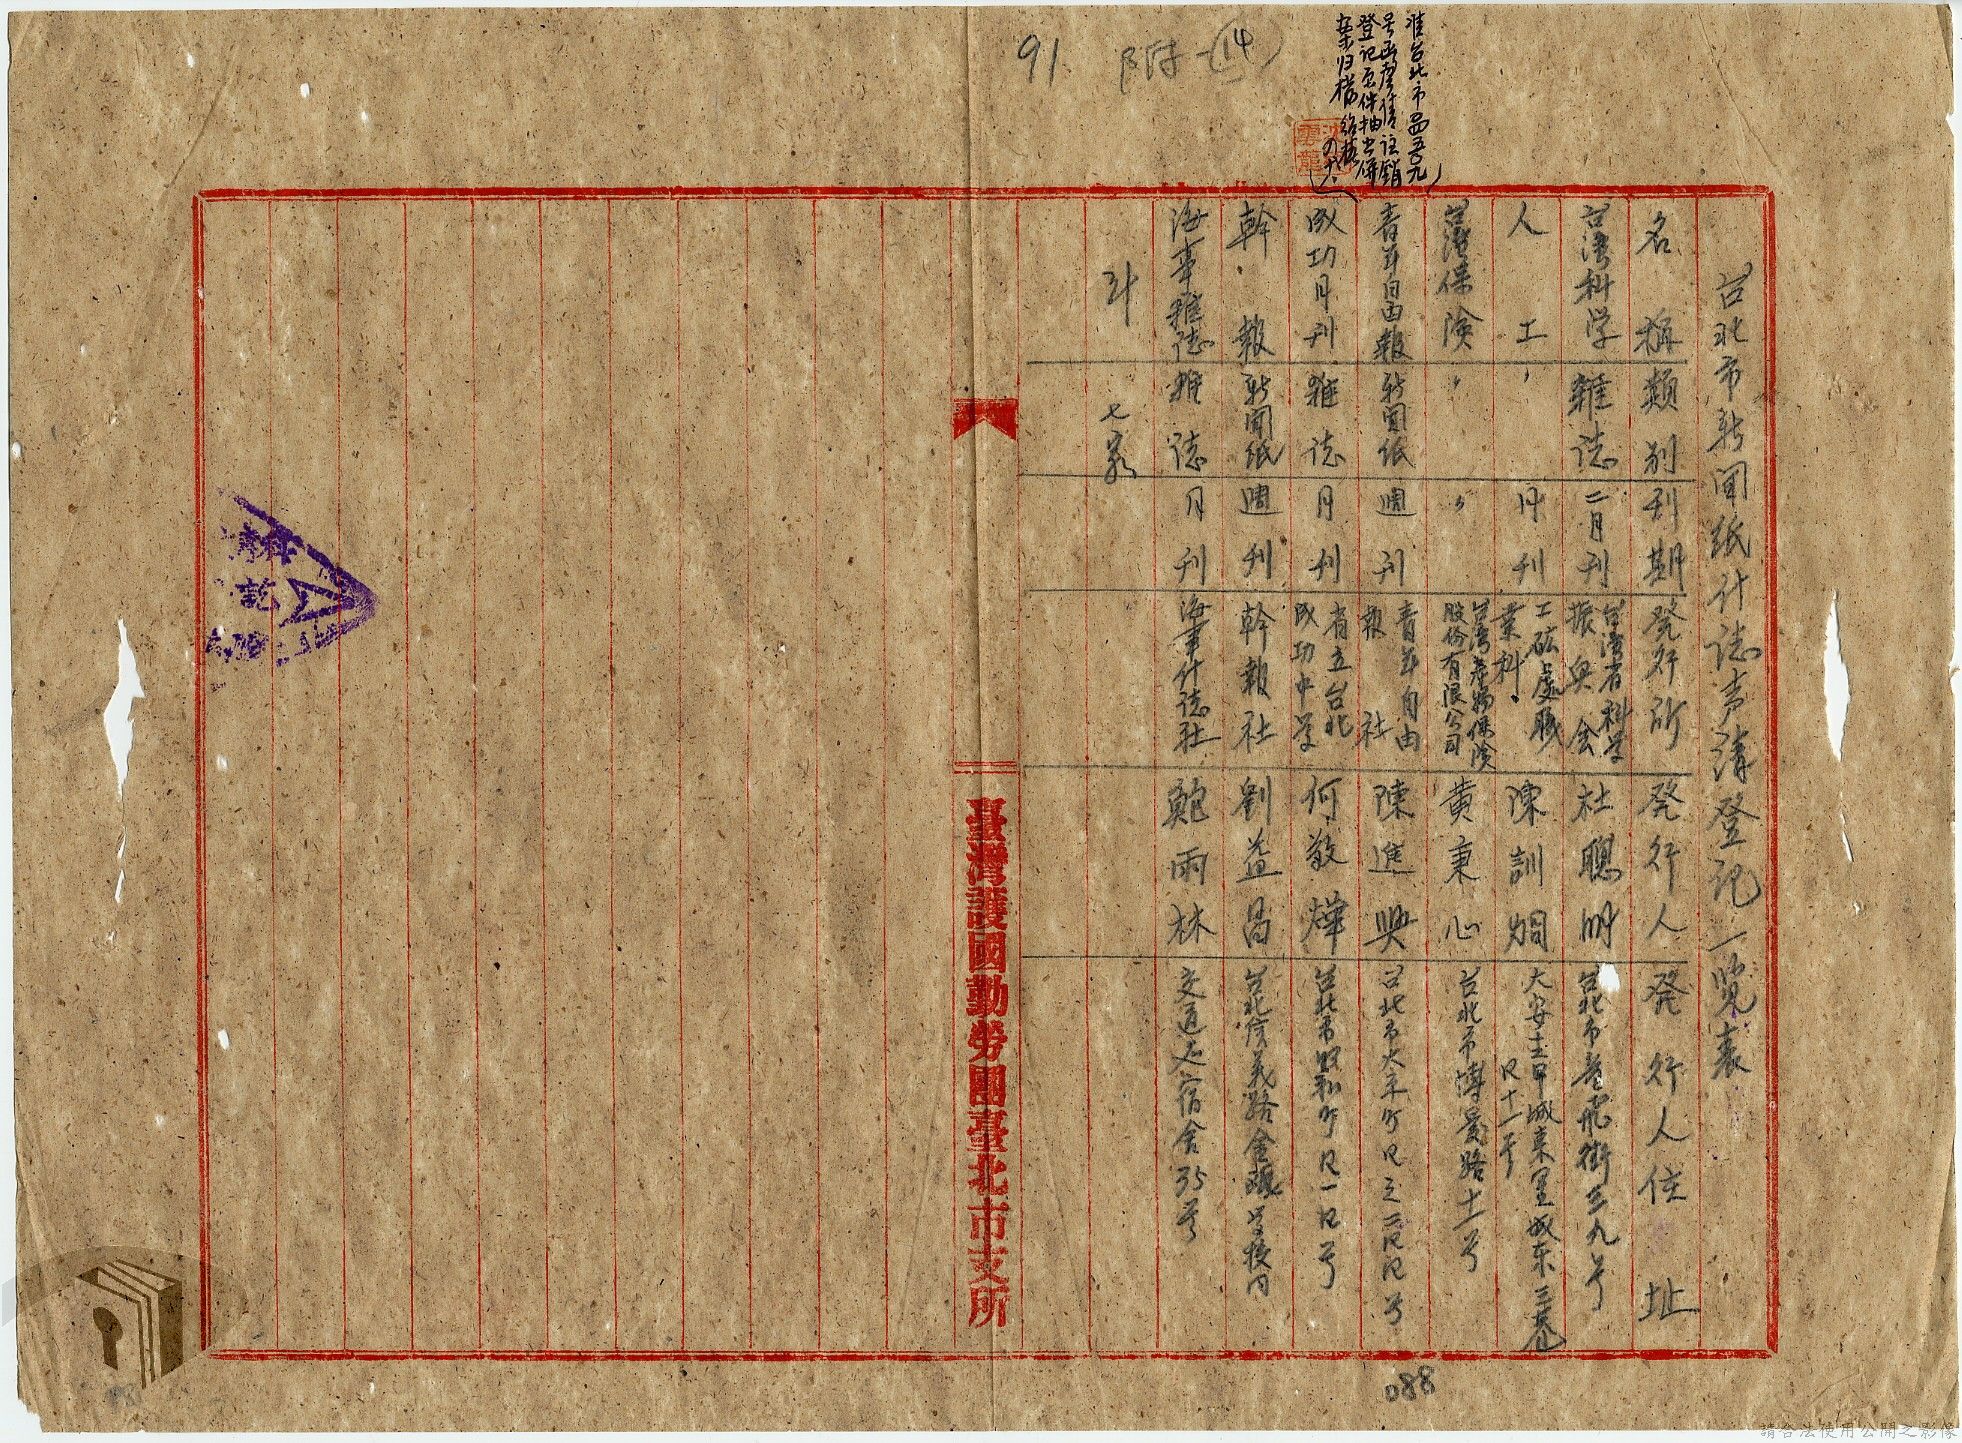 91.
附-14
台北市新聞紙什誌声請登記一覽表
名稱 類別 刊期 発行所 発行人 発行人住址
台湾科学 雜誌 二月刊 台湾省科学振興会 杜聰明 台北市 街三九号
人工 〃 月刊 工砿處職業科 陳訓炯 大安 城東里城东三巷
尺十一号
台湾保険 〃 〃 台湾產物保険股份有限公司 黄秉心 台北市博爱路十一号
青年自由報 新聞紙 週刊 青年自由報社 陳進興 台北市太平
成功月刊 雜誌 月刊 省立台北成功中学 何敬燁 台北市昭和
幹報 新聞紙 週刊 幹報社 劉益昌 台北信義路金甌学校内
海事雜誌 雜誌 月刊 海事什誌社 鮑雨林 交通处宿舍35号
計 七家
准台北市
号函声請注銷
登记原件抽出併
案归檔
臺灣護國勤勞團臺北市支所
088
請合法使用公開之影像